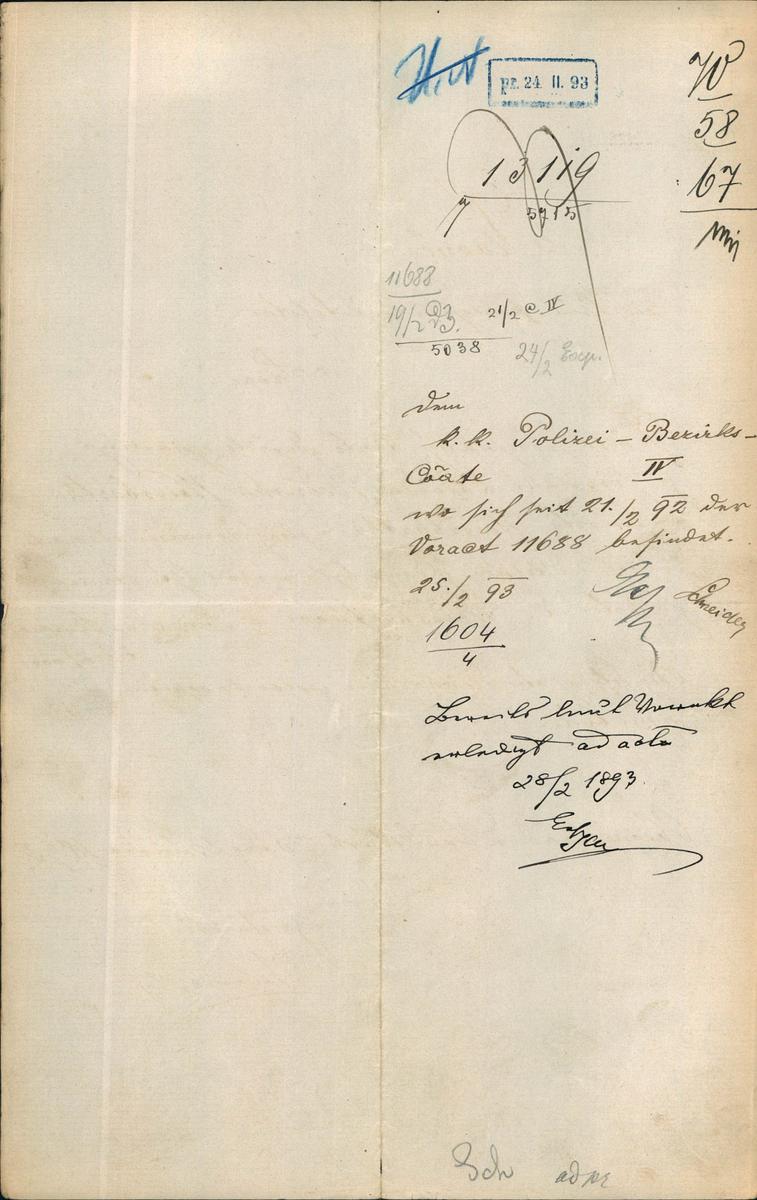 pr. 24. II. 93
70
58
67
13119
5715
11688
19/2 93.
21/2 C IV
5038
24/2 Exp.
dem
k. k. Polizei – Bezirks–
Cõate IV
wo sich seit 21./2 92 der
Voract 11688 befindet.
25./2 93
Schneider
1604
4
Bereits laut Vorakt
erledigt ad acta
28/2 1893
Sch adpr